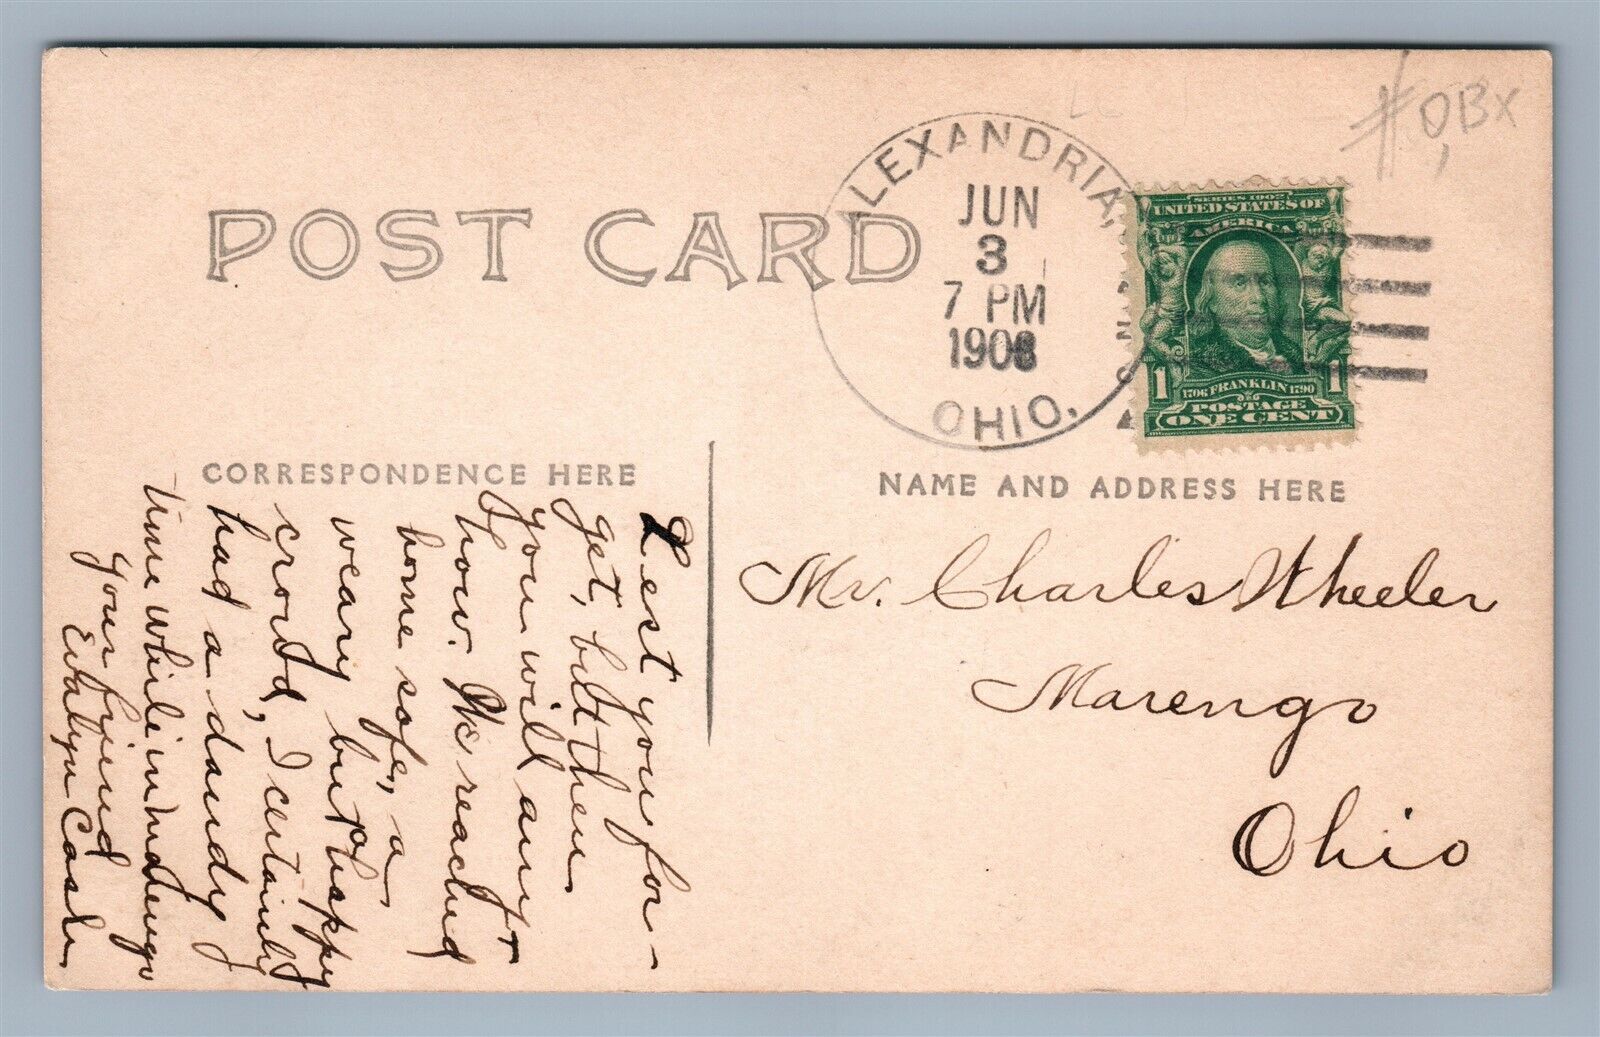 POST CARD
ALEXANDRIA,
JUN
3
7 PM
1908
OHIO.
SERIES 1902
UNITED STATES OF
AMERICA
1 1
1706 FRANKLIN 1790
POSTAGE
ONE CENT
CORRESPONDENCE HERE
NAME AND ADDRESS HERE
Lest you for-
get, but then
you will any-
how. We reached
home safe, a
weary but happy
crowd, I certainly
had a dandy
time while in Marengo
Your friend
Evalyn
Mr. Charles Wheeler
Marengo
Ohio